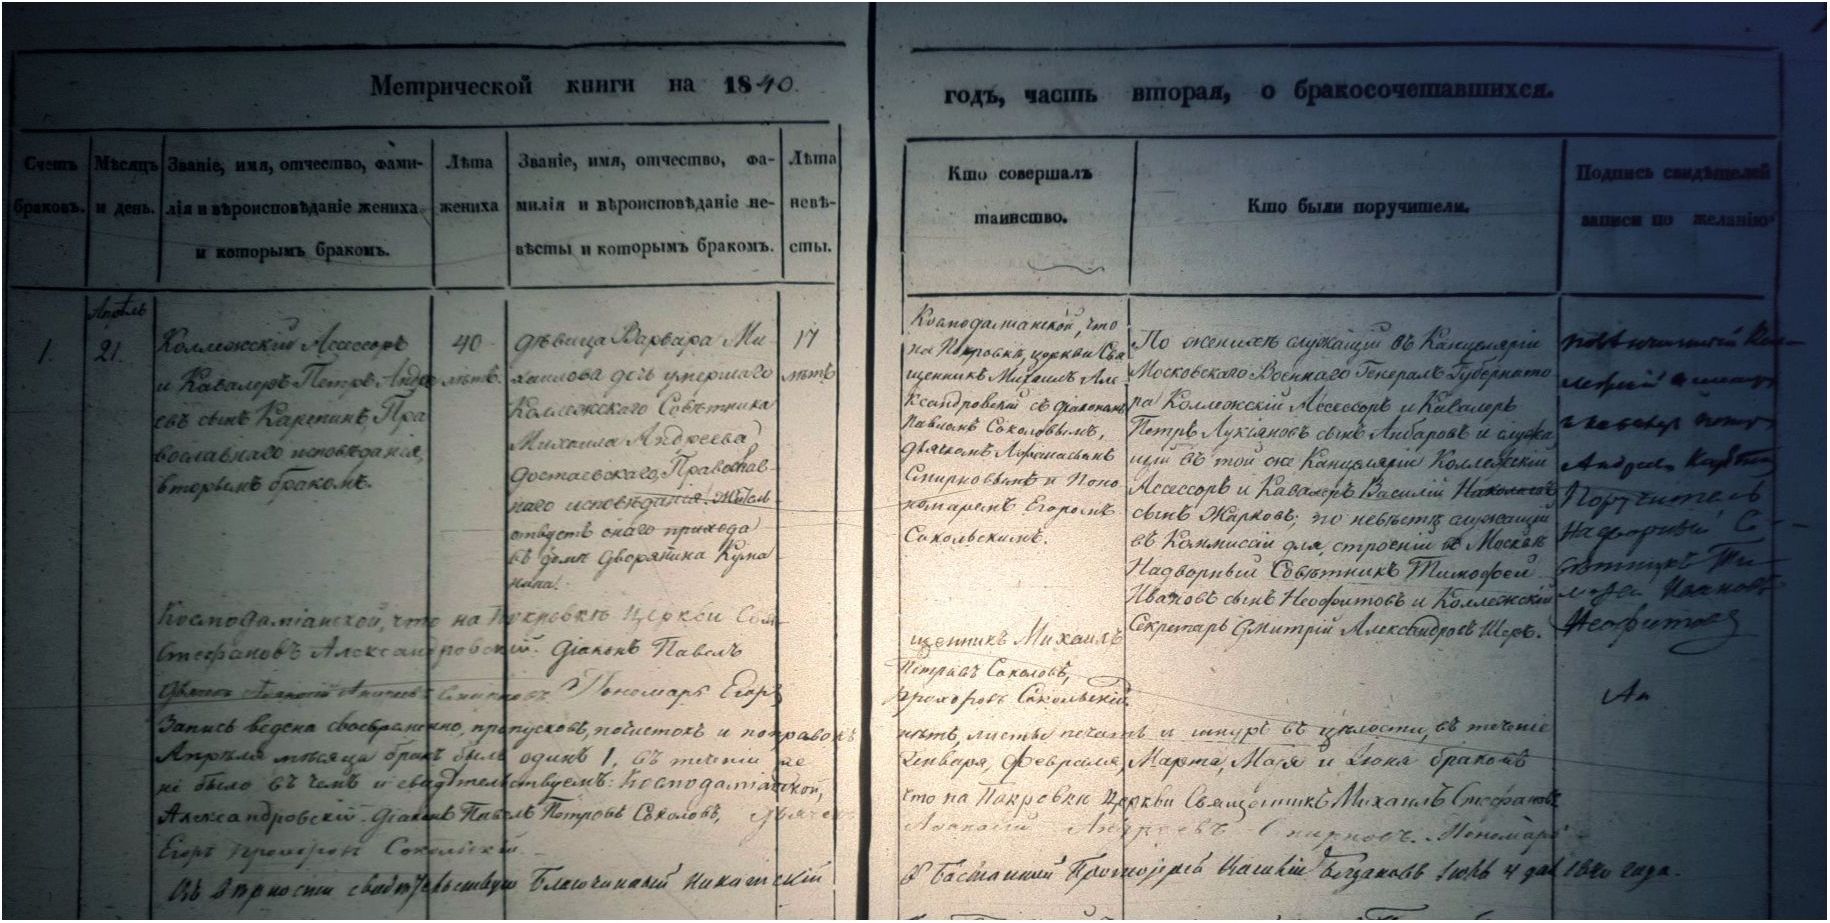 Метрической книги на 1840.
годъ, часть вторая, о бракосочетавшихся.
Счетъ
браковъ.
Мѣсяцъ
и день.
Званіе, имя, отчество, фами-
лія и вѣроисповѣданіе жениха
и которымъ бракомъ.
Лѣта
жениха
Званіе, имя, отчество, фа-
милія и вѣроисповѣданіе не-
вѣсты и которымъ бракомъ.
Лѣта
невѣ-
сты.
Кто совершалъ
таинство.
Кто были поручители.
Подпись свидѣтелей
записи по желанію
1.
Апрѣль
21.
Коллежскій Асессоръ
и Кавалеръ Петръ Андре
евъ сынъ Карепинъ, Пра
вославнаго исповѣданія,
вторымъ бракомъ.
40
лѣтъ.
дѣвица Варвара Ми-
хаилова дочь умершаго
Коллежскаго Совѣтника
Михаила Андреева
Достаевскаго, Православ-
наго исповѣданія. Жѝтель-
ствуетъ онаго прихода
въ домѣ дворянина Кума
нина.
17
лѣтъ
Космодаміанской, что
на Покровкѣ, церкви Свя
щенникъ Михаилъ Але
ксандровскій съ діакономъ
Павломъ Соколовымъ,
дьячкомъ Афанасьемъ
Смирновымъ и Поно
маремъ Егоромъ
Сокольскимъ.
По женихѣ служащій въ Канцеляріи
Московскаго Военнаго Генералъ Губернато
ра Коллежскій Асессоръ и Кавалеръ
Петръ Лукьяновъ сынъ Анбаровъ и служа
щій въ той же Канцеляріи Коллежскій
Асессоръ и Кавалеръ Василій Николаевъ
сынъ Жарковъ; по невѣстѣ служащій
въ Коммисіи для строеній въ Москвѣ
Надворный Совѣтникъ Тимофей
Ивановъ сынъ Неофитовъ и Коллежскій
Секретарь Дмитрій Александровъ Шеръ.
Поручитель
Надворный Со-
вѣтникъ Ти-
мофей Ивановъ
Неофитовъ
Космодаміанской, что на Покровкѣ Церкви Свя-
щенникъ Михаилъ
Стефановъ Александровскій. Діаконъ Павелъ
Петровъ Соколовъ,
Смирновъ. Пономарь Егоръ
Прохоровъ Сокольскій.
Запись ведена своевременно, пропусковъ, почистокъ и поправокъ
нѣтъ, листы печать и шнуръ въ цѣлости, въ теченіе
Апрѣля мѣсяца бракъ былъ одинъ 1, въ теченіи же
Генваря, Февраля, Марта, Маія и Іюня браковъ
не было въ чемъ и свидѣтельствуемъ: Космодаміанской,
что на Покровкѣ Церкви Священникъ Михаилъ Стефановъ
Александровскій. Діаконъ Павелъ Петровъ Соколовъ, Дьячекъ
Смирновъ. Пономарь
Егоръ Прохоровъ Сокольскій.
Въ вѣрности свидѣтельствую Благочинный Никитскій
въ Басманной Протоіерей Богдановъ Іюль 4 дня 1840 года.